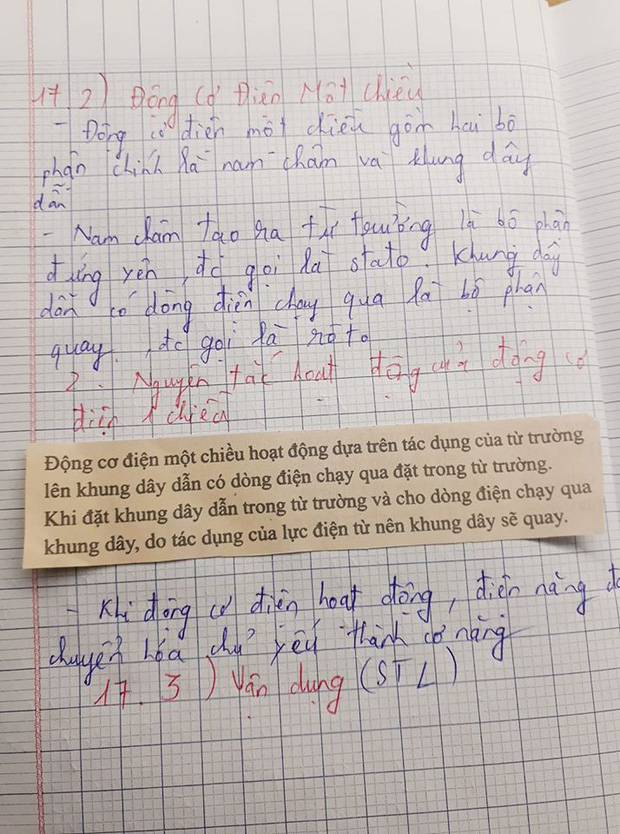 17.2) Động Cơ Điện Một Chiều
- Động cơ điện một chiều gồm hai bộ
phận chính là nam châm và khung dây
dẫn
- Nam châm tạo ra từ trường là bộ phận
đứng yên, đc gọi là stato. Khung dây
dẫn có dòng điện chạy qua là bộ phận
quay, đc gọi là rôto
2. Nguyên tắc hoạt động của động cơ
điện 1 chiều
Động cơ điện một chiều hoạt động dựa trên tác dụng của từ trường
lên khung dây dẫn có dòng điện chạy qua đặt trong từ trường.
Khi đặt khung dây dẫn trong từ trường và cho dòng điện chạy qua
khung dây, do tác dụng của lực điện từ nên khung dây sẽ quay.
- Khi động cơ điện hoạt động, điện năng đc
chuyển hóa chủ yếu thành cơ năng
17.3) Vận dụng (STL)